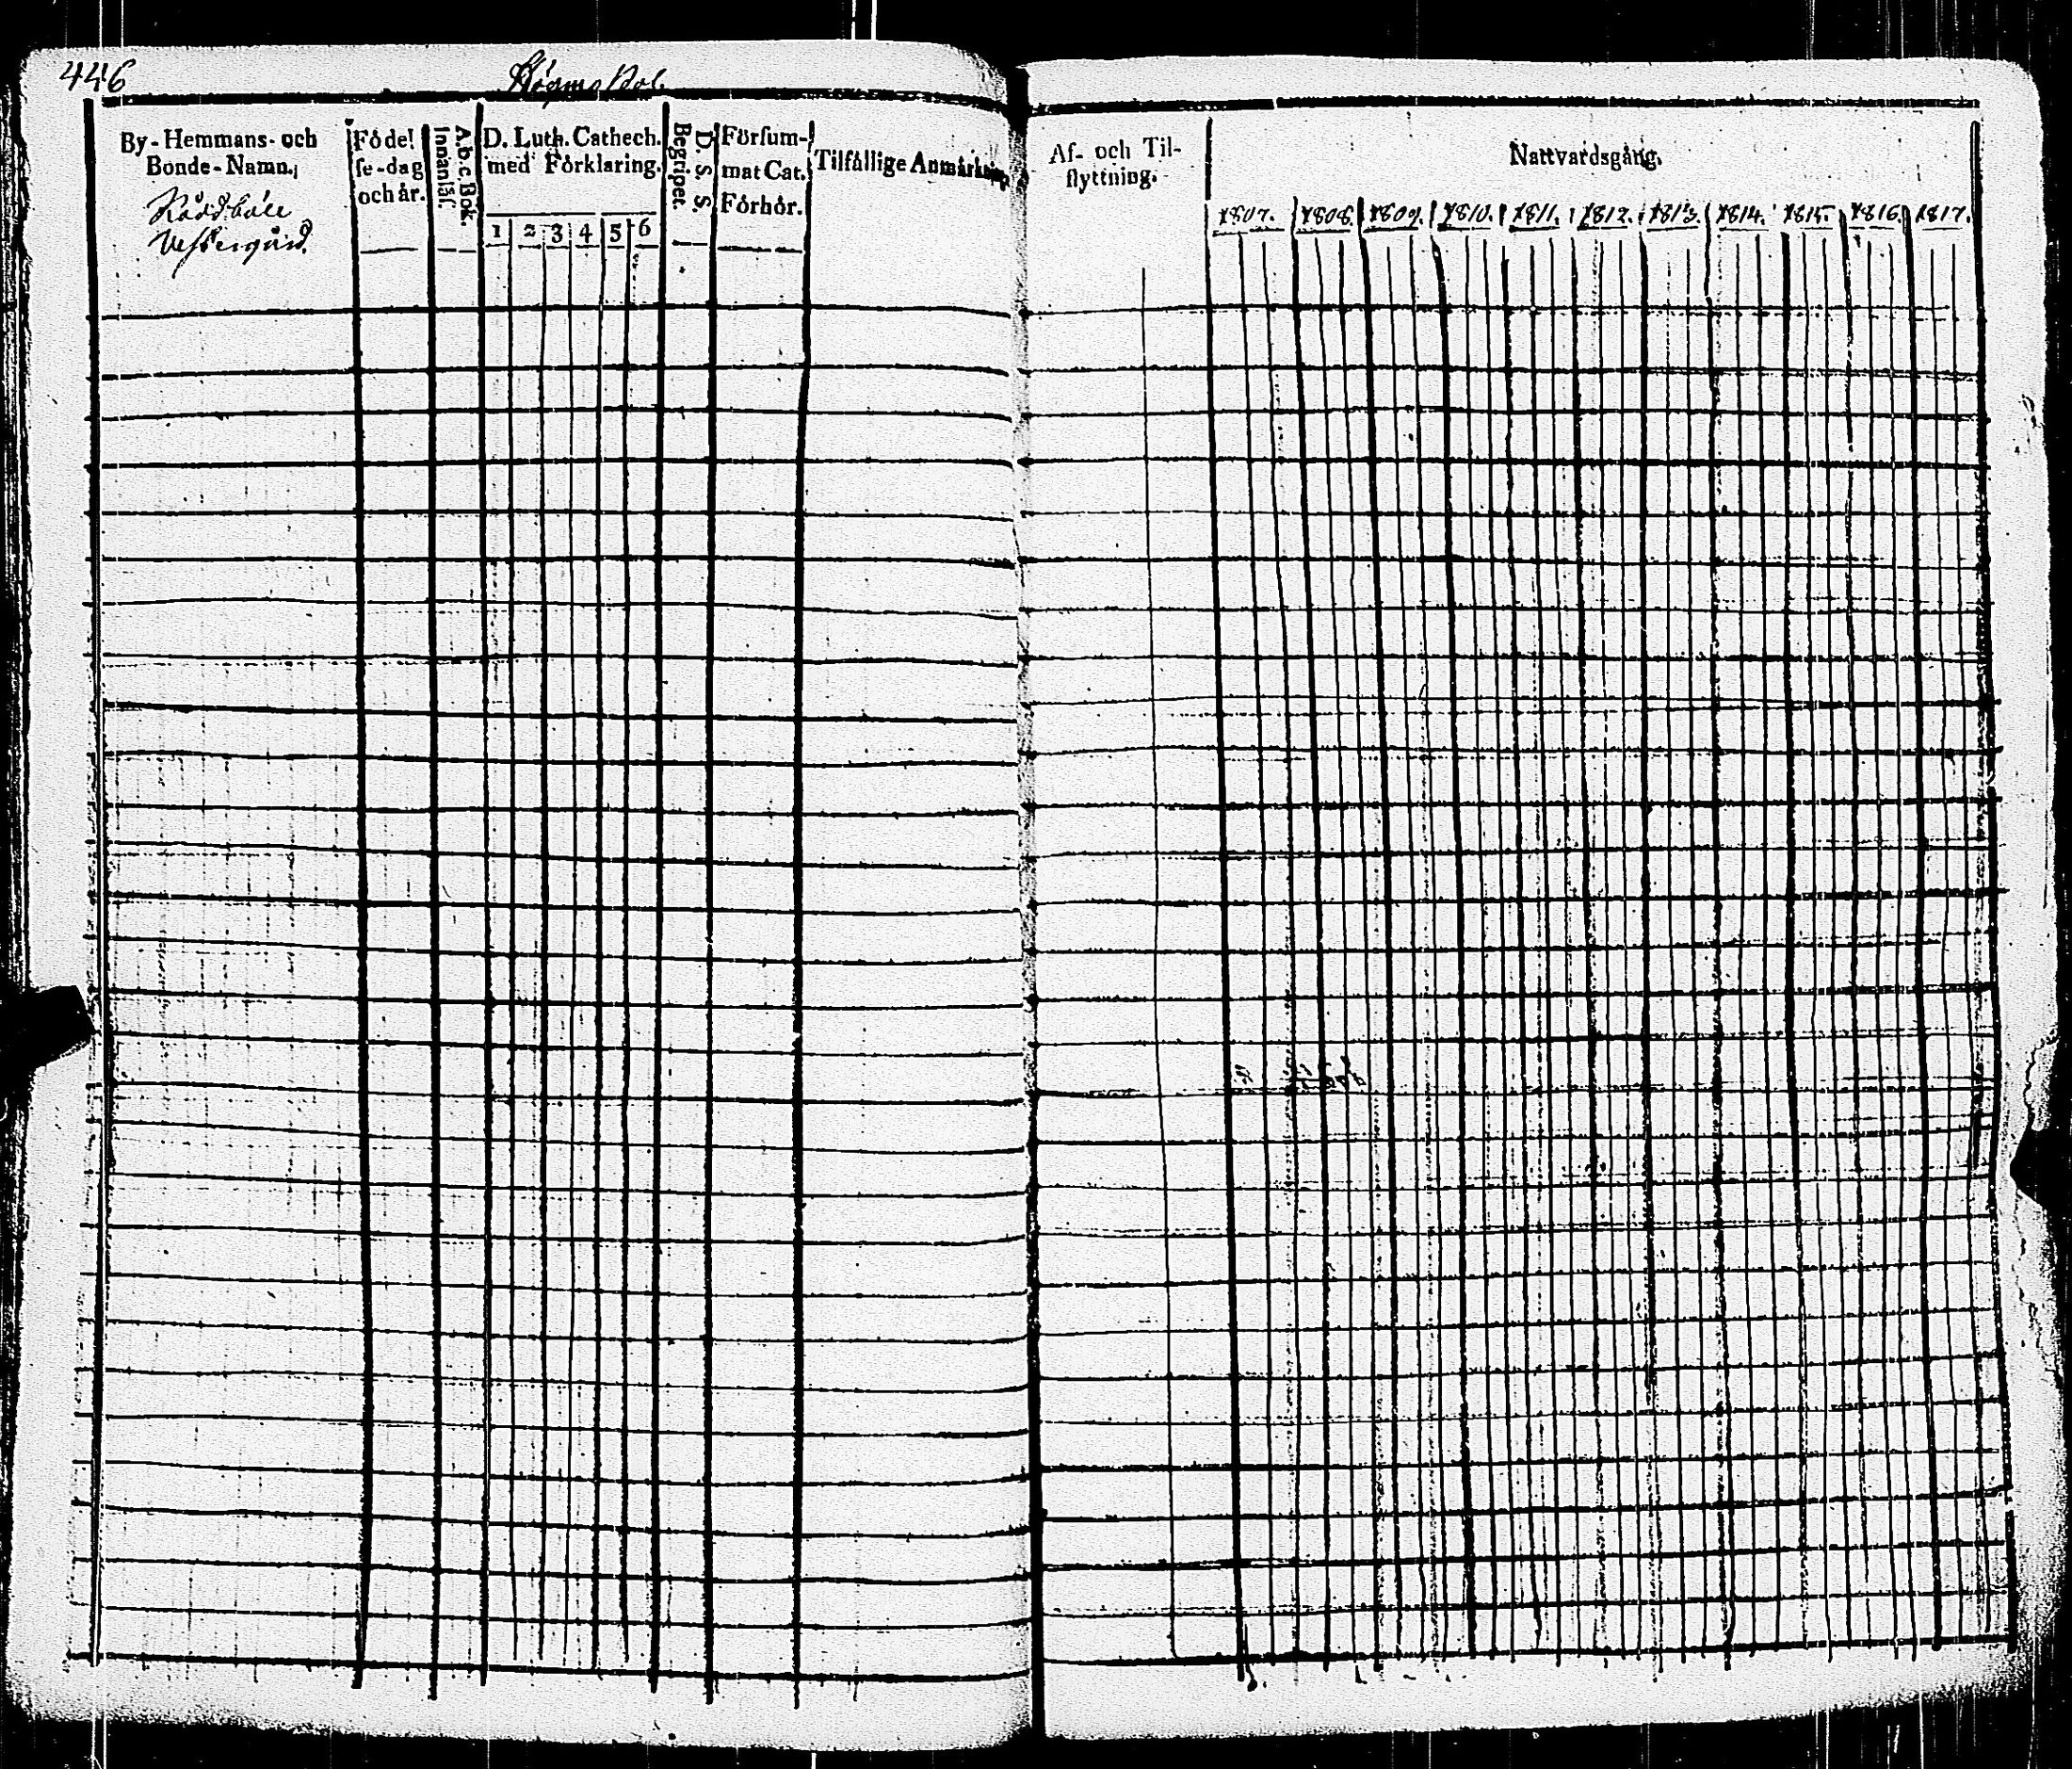 446
By-Hemmans- och
Bonde-Namn.
Rödbäle
Vestergård.
Födel
se-dag
och år.
A.b.c.Bok.
Innanläs.
D. Luth. Cathech.
med Förklaring.
1 2 3 4 5 6
D. S. S.
Begriper.
Försum-
mat Cat.
Förhör.
Tilfällige Anmärkning
Af- och Til-
flyttning.
Nattvardsgång.
1807. 1808. 1809. 1810. 1811. 1812. 1813. 1814. 1815. 1816. 1817.